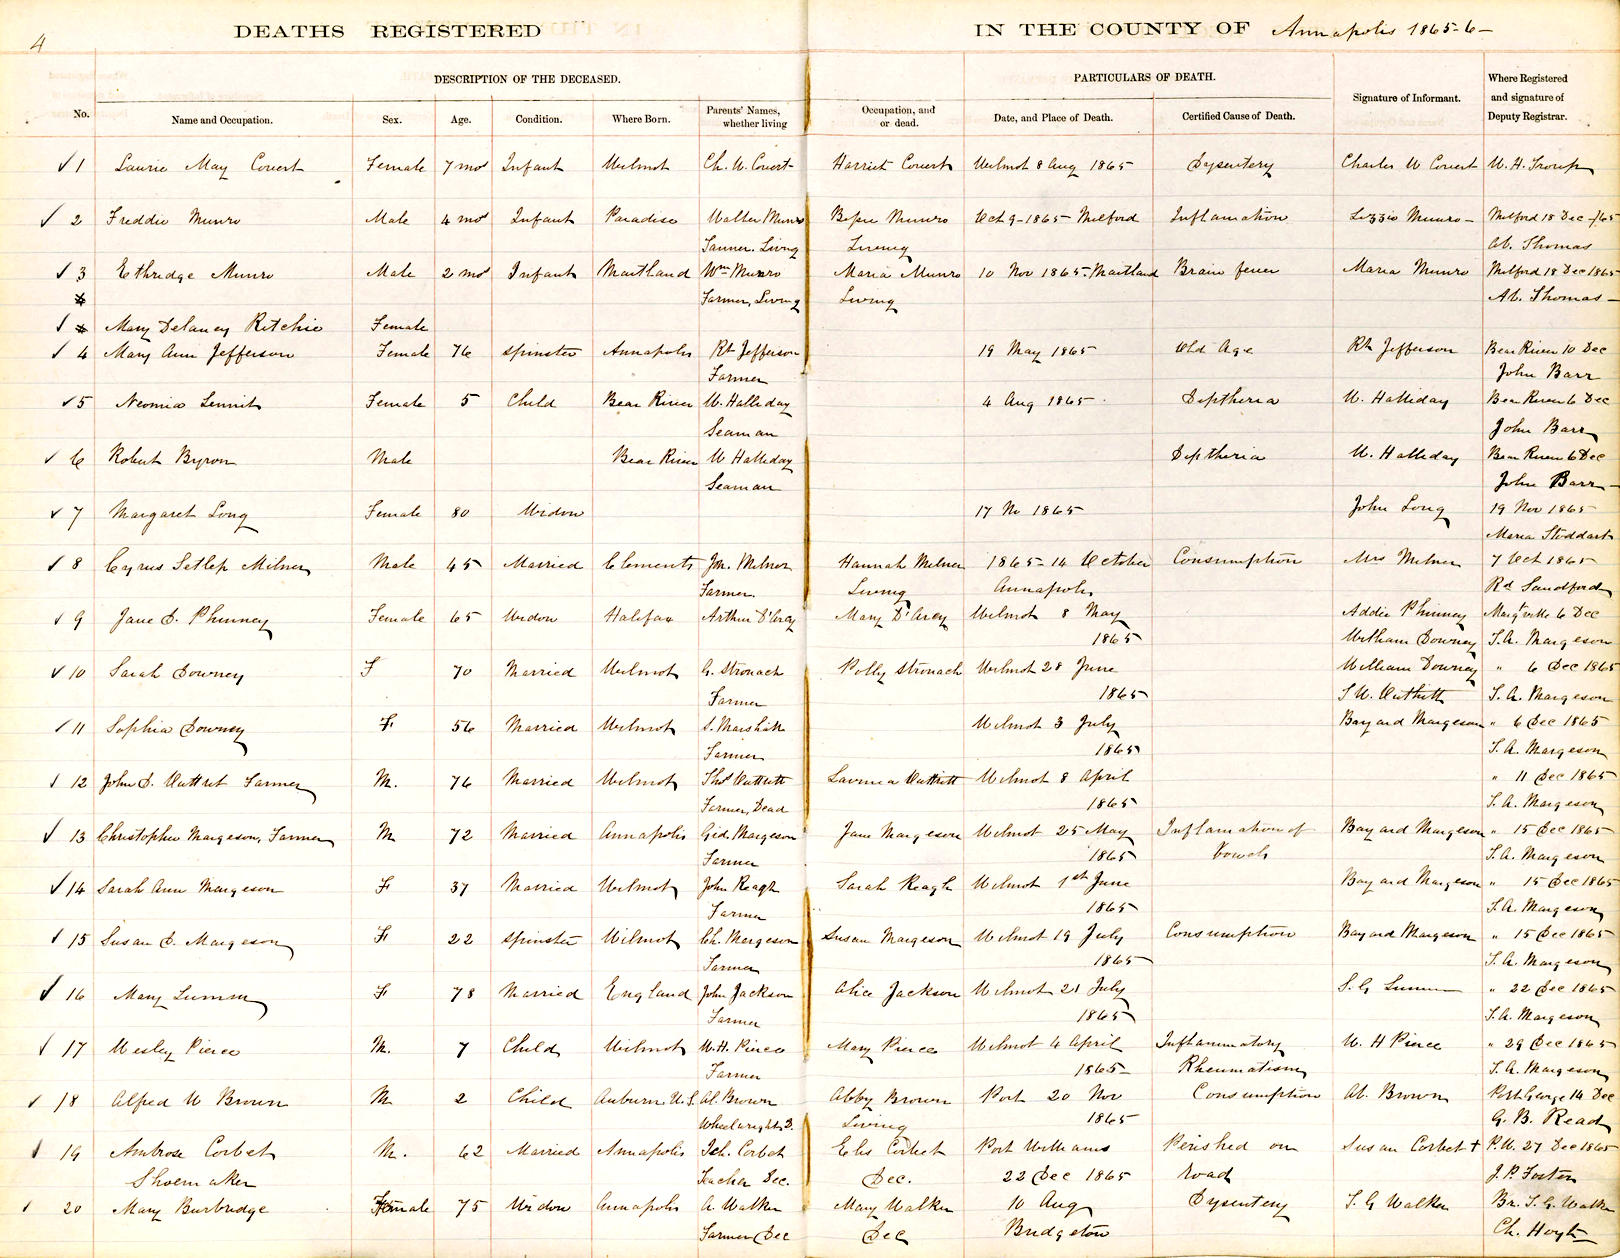 4
DEATHS REGISTERED IN THE COUNTY OF Annapolis 1865-6-
DESCRIPTION OF THE DECEASED. PARTICULARS OF DEATH.
No. Name and Occupation. Sex. Age. Condition. Where Born. Parents' Names, whether living Occupation, and or dead. Date, and Place of Death. Certified Cause of Death. Signature of Informant. Where Registered and signature of Deputy Registrar.
✓ 1 Laurie May Covert Female 7 mos Infant Wilmot Ch. W. Covert Harriet Covert Wilmot 8 Aug 1865 Dysentery Charles W Covert W. H. Troup
✓ 2 Freddie Munro Male 4 mos Infant Paradise Walter Munro Bessie Munro Oct 9-1865- Milford Inflamation Lizzie Munro- Milford 18 Dec -/65
Tanner. Living Living Ab. Thomas
✓ 3 Ethridge Munro Male 2 mos Infant Maitland Wm Munro Maria Munro 10 Nov 1865-Maitland Brain fever Maria Munro Milford 18 Dec 1865
Farmer, Living Living Ab. Thomas-
✓ Mary Delaney Ritchie Female
✓ 4 Mary Ann Jefferson Female 76 Spinster Annapolis Rt Jefferson 19 May 1865 Old Age Rt Jefferson Bear River 10 Dec
Farmer John Barr
✓ 5 Neomia Female 5 Child Bear River W. Halliday 4 Aug 1865 Diptheria W. Halliday Bear River 6 Dec
Seaman John Barr
✓ 6 Robert Byron Male Bear River W Halliday Diptheria W. Halliday Bear River 6 Dec
Seaman John Barr-
✓ 7 Margaret Long Female 80 Widow 17 No 1865 John Long 19 Nov 1865
Maria Stoddart
✓ 8 Cyrus Milner Male 45 Married Clements Jn. Milner Hannah Milner 1865-14 October Consumption Mrs Milner 7 Oct 1865
Farmer. Living Annapolis Rd Sandford
✓ 9 Jane D. Phinney Female 65 Widow Halifax Arthur D'arcy Mary D'Arcy Wilmot 8 May Addie Phinney Margtville 6 Dec
1865 William Downey S. A. Margeson
✓ 10 Sarah Downey F 70 Married Wilmot G. Stronach Polly Stronach Wilmot 28 June William Downey " 6 Dec 1865
Farmer 1865 S. A. Margeson
✓ 11 Sophia Downey F 56 Married Wilmot S. Marshall Wilmot 3 July Bayard Margeson " 6 Dec 1865
Farmer 1865 S. A. Margeson
✓ 12 John D. Farmer M. 76 Married Wilmot Thos Wilmot 8 April " 11 Dec 1865
Farmer, Dead 1865 S. A. Margeson
✓ 13 Christopher Margeson, Farmer M 72 Married Annapolis Gid. Margeson Jane Margeson Wilmot 25 May Inflamation of Bayard Margeson " 15 Dec 1865
Farmer 1865 bowels S. A. Margeson
✓ 14 Sarah Ann Margeson F 37 Married Wilmot John Reagh Sarah Reagh Wilmot 1st June Bayard Margeson " 15 Dec 1865
Farmer 1865 S. A. Margeson
✓ 15 Susan D. Margeson F 22 Spinster Wilmot Ch. Margeson Susan Margeson Wilmot 19 July Consumption Bayard Margeson " 15 Dec 1865
Farmer 1865 S. A. Margeson
✓ 16 Mary F 78 Married England John Jackson Alice Jackson Wilmot 21 July " 22 Dec 1865
Farmer 1865 S. A. Margeson
✓ 17 Wesley Pierce M. 7 Child Wilmot W. H. Pierce Mary Pierce Wilmot 4 April Inflammatory W. H Pierce " 29 Dec 1865
Farmer 1865- Rheumatism S. A. Margeson
✓ 18 Alfred W Brown M 2 Child Auburn U.S. Ab. Brown Abby Brown Port 20 Nov Consumption Ab. Brown Port George 14 Dec
Wheelwright Living 1865 G. B. Read
✓ 19 Ambrose Corbet M. 62 Married Annapolis Ich. Corbet Elis Corbet Port Williams Perished on Susan Corbet + P.W. 27 Dec 1865
Shoemaker Teacher Dec. Dec. 22 Dec 1865 Road J. P. Foster
✓ 20 Mary Burbridge Female 75 Widow Annapolis A. Walker Mary Walker 10 Aug Dysentery S. G Walker Br. S. G. Walker
Farmer Dec Dec Bridgeton Ch. Hoyt